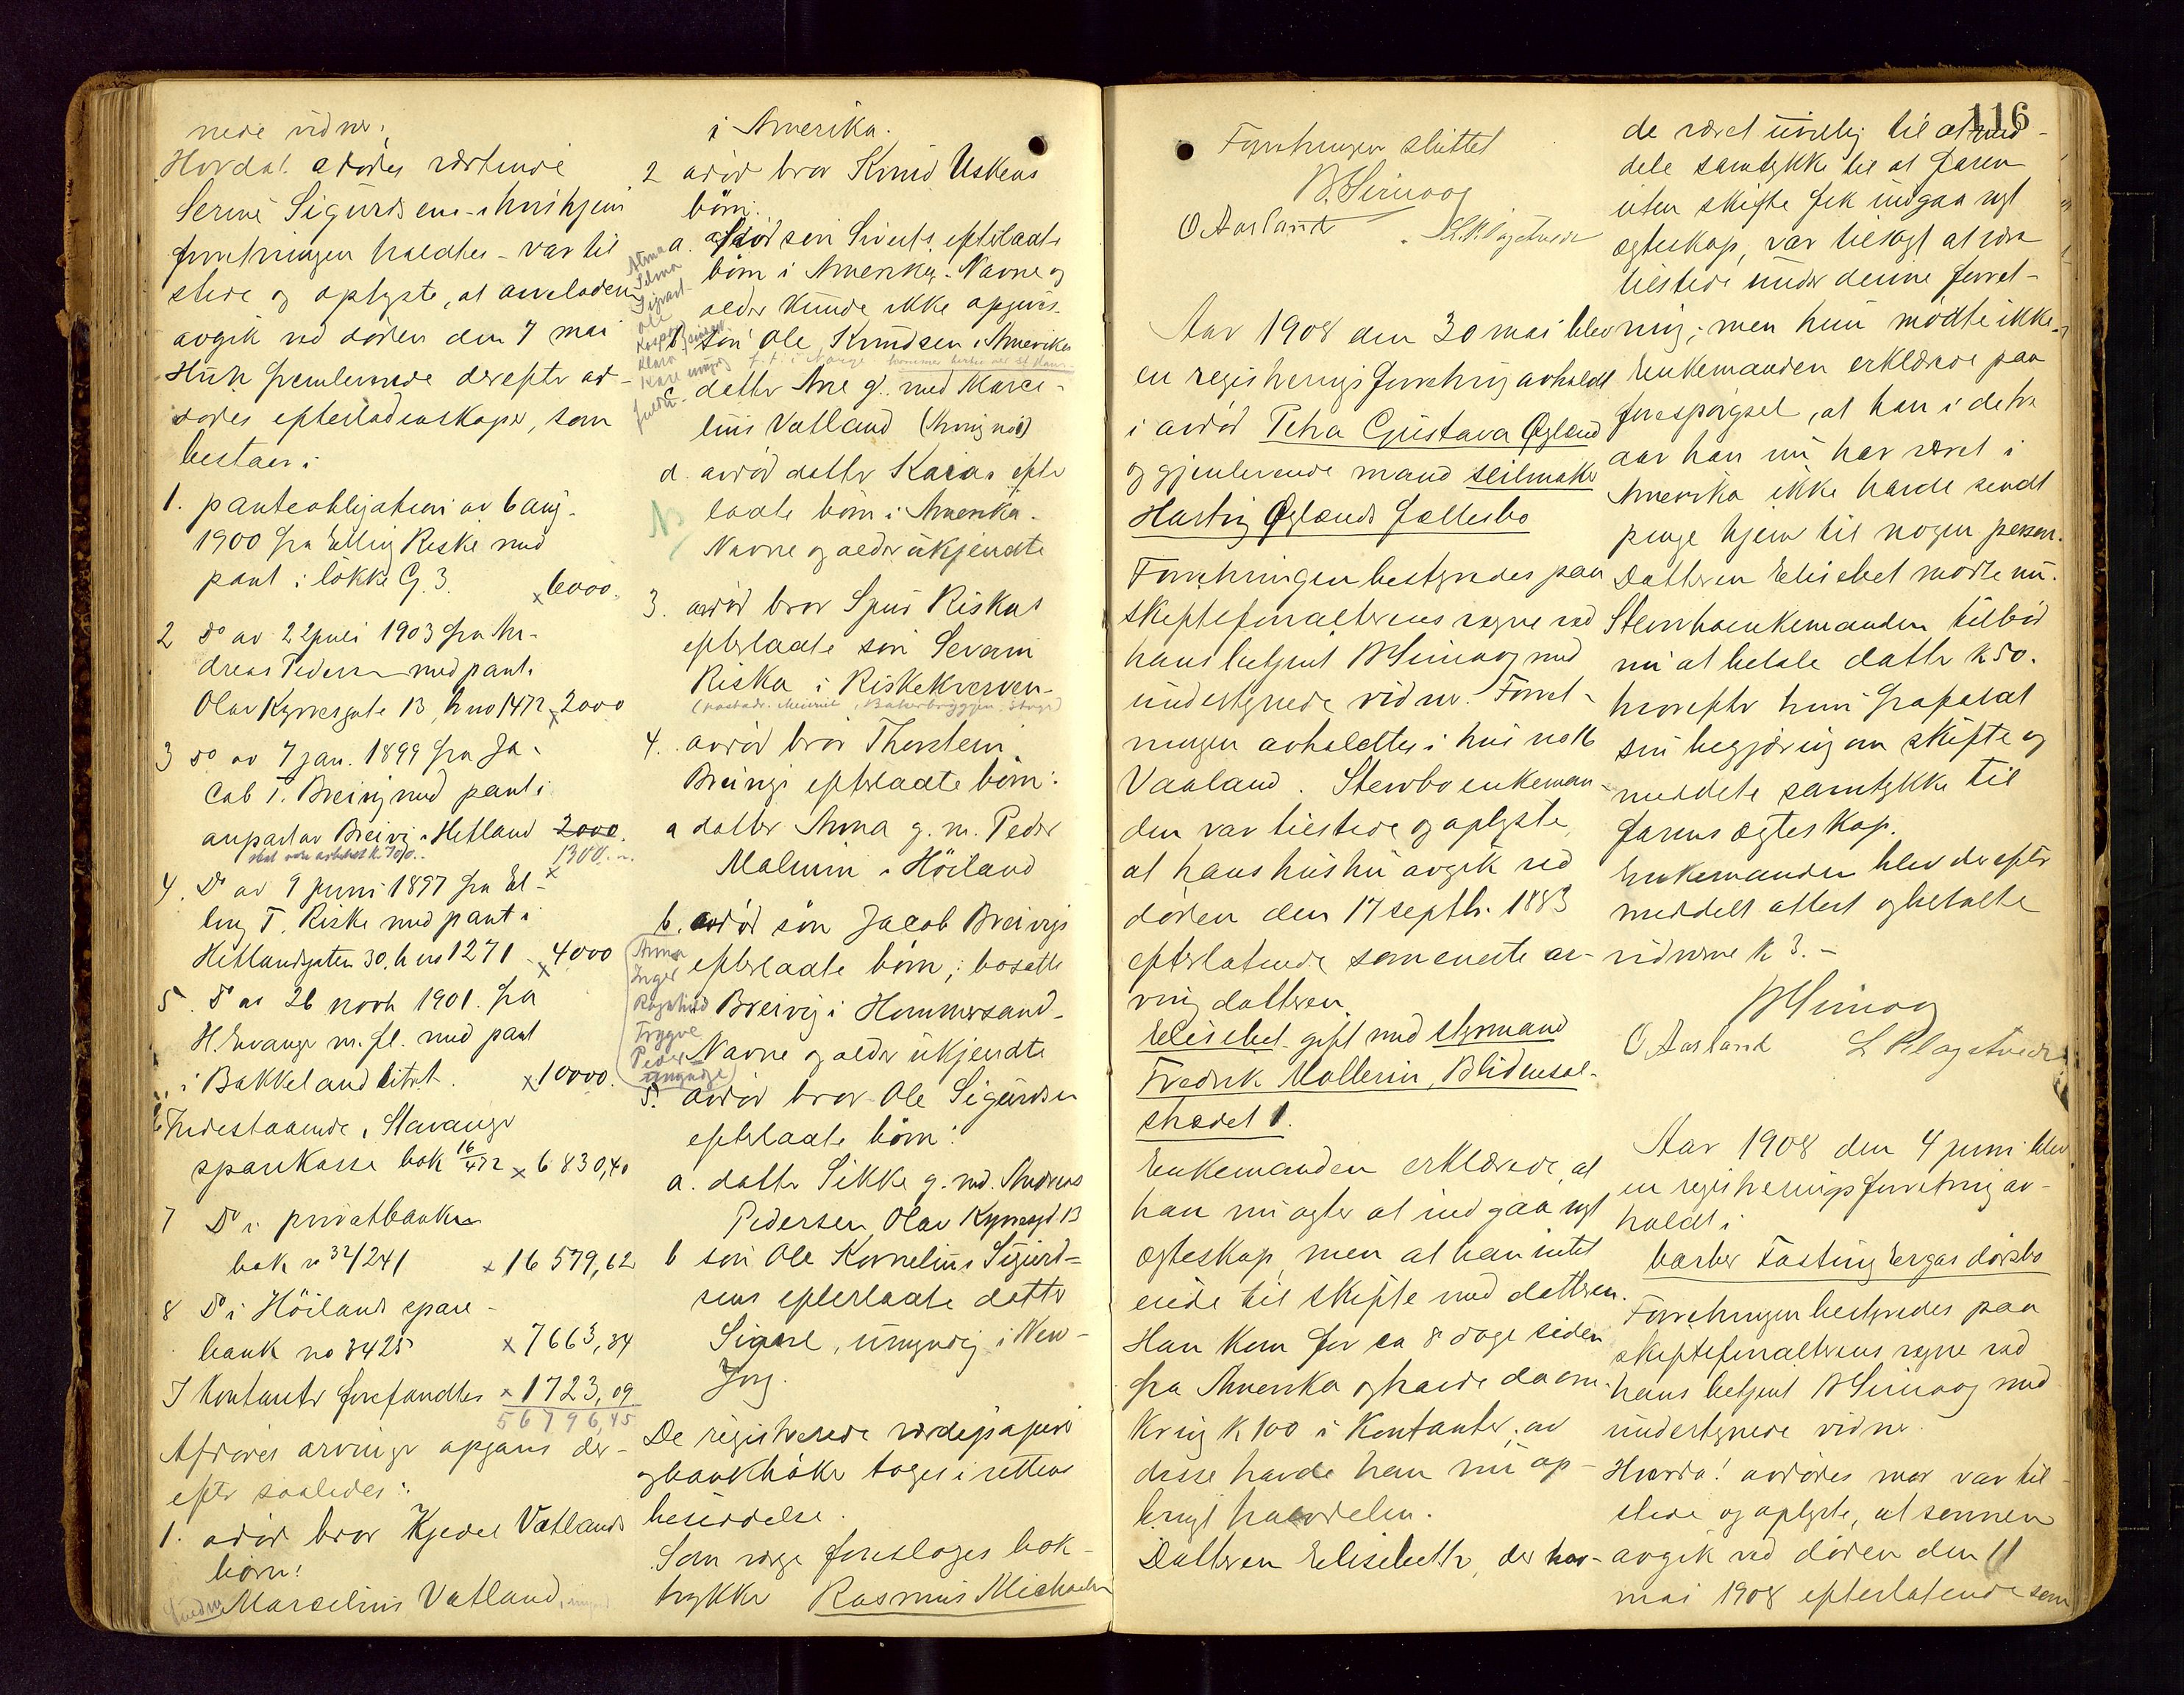 nede vidner.
Hvorda! avdødes værtinde
Serine Sigurdsens i hvis hjem
forretningen holdtes - var til
stede og oplyste, at arveladeren
avgik ved døden den 7 mai
Hun fremleverede derefter av-
dødes efterladenskaper, som
bestaar i
1. panteobligation av 6 aug.
1900 fra Elling Riske med
pant i løkke G. 3. x 6000.
2 Do av 22 juli 1903 fra An-
dreas Pedersen med pant i
Olav Kyrresgate 13, h no 1472 x 2000
3 Do av 7 jan. 1899 fra Ja-
cob T. Breivig med pant i
anpart av Breivig i Hetland 2000.
x 1300.-
4. Do av 9 juni 1897 fra El-
ling T. Riske med pant i
Hetlandsgaten 30, h no 1271 x 4000
5. Do av 26 novb 1901 fra
H. Svange m. fl. med pant
i Bakkeland litet. x 10000.
6 Indestaaende i Stavanger
sparekasse bok 16/472 x 6830,40
7 Do i privatbanken
bok no 32/241 x 16579,62
8 Do i Höilands spare-
bank no 3425 x 7663,34
I kontanter forefandtes x 1723,09
56796,45
Afdødes arvinger opgaves der-
efter saaledes:
1. avdød bror Kjedel Vatlands
børn:
Marcelius Vatland,
i Amerika.
2 avdød bror Knud Uskens
børn:
a. avdød søn Siverts efterlaate
børn i Amerika. Navne og
alder kunde ikke opgives.
b søn Ole Knudsen i Amerika
c datter Ane g. med Marce-
lius Vatland
d. avdød datter Kaias efter
laate børn i Amerika.
Navne og alder ukjendte
3. avdød bror Sjur Riskas
efterlaate søn Severin
Riska i Riskekverven-
4. avdød bror Thorstein
Breivigs efterlaate børn:
a datter Anna g. m. Peder
Malmin i Höiland
b. avdød søn Jacob Breivigs
efterlaate børn, bosatte
i Breivig i Hommersand.
Navne og alder ukjendte
Anna
Inger
Ragnhild
Trygve
Peder
umyndige
5. avdød bror Ole Sigurdsen
efterlaate børn:
a. datter Sikke g. med. Andreas
Pedersen, Olav Kyrresgd 13
b søn Ole Kornelius Sigurd-
sens efterlaate datter
Signe, umyndig i New-
Jorg.
De registrerede værdipapirer
og bankbøker toges i rettens
besiddelse.
Som værge foresloges bok-
trykker Rasmus Michaelsen
116
Forretningen sluttet
B Simog
O Aarland
Aar 1908 den 30 mai blev
en registreringsforretning avholdt
i avdød Petra Gustava Øgland
og gjenlevende mand seilmaker
Hartvig Øglands fællesbo
Forretningen bestyredes paa
skifteforvalterens vegne ved
hans betjent B Simog med
undertegnede vidner. Forret-
ningen avholdtes i hus no 16
Vaaland. Stervboenkeman-
den var tilstede og oplyste,
at hans hustru avgik ved
døden den 17 septbr. 1883
efterlatende som eneste ar-
ving datteren
Elisebet gift med styrmand
Fredrik Mollerin, Blidensol-
stredet 1.
Enkemanden erklærede, at
han nu agter at indgaa nyt
egteskap, men at han intet
eiede til skifte med datteren.
Han kom for ca 8 dage siden
fra Amerika og havde da om-
kring k 100 i kontanter; av
disse havde han nu op-
brugt halvdelen.
Datteren Elisebeth, der hav-
de været uvillig til at med-
dele samtykke til at faren
uten skifte fik indgaa nyt
egteskap, var tilsagt at være
tilstede under denne forret-
ning; men hun mødte ikke.
Enkemanden erklærede paa
forespørgsel, at han i de tre
aar han nu har været i
Amerika ikke havde sendt
penge hjem til nogen person.
Datteren Elisebet mødte nu.
Stervboenkemanden tilbød
nu at betale datter k 50.
hvorefter hun frafaldt
sin begjæring om skifte og
meddelte samtykke til
farens egteskap.
Enkemanden blev derefter
meddelt attest og betalte
vidnerne k 3.-
B Simog
O Aarland
Aar 1908 den 4 juni blev
en registreringsforretning av-
holdt i
barber Fasting Ergas dødsbo
Forretningen bestyredes paa
skifteforvalterens vegne ved
hans betjent B Simog med
undertegnede vidner.
Hvorda! avdødes mor var til-
stede og oplyste, at sønnen
avgik ved døden den 11
mai 1908 efterlatende som